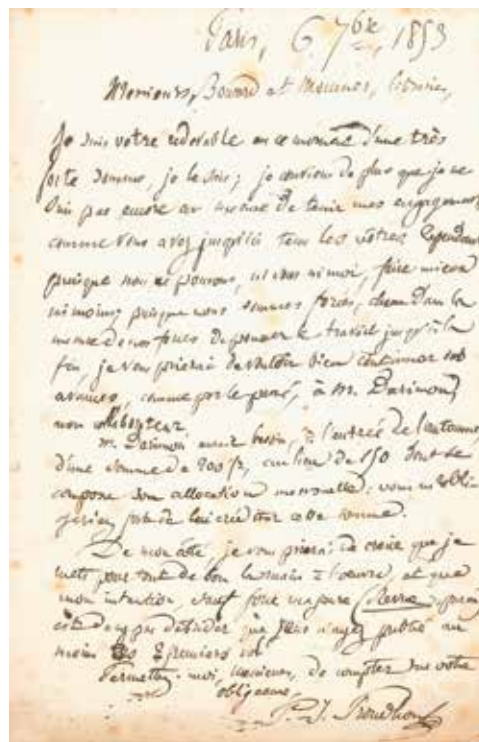 Paris, 6 7bre 1853
Messieurs, Bouvard et Mesmer, libraires,
Je suis votre redevable en ce moment d'une très
forte somme, je le sais ; je conviens de plus que je ne
suis pas encore en mesure de tenir mes engagements
comme vous avez jusqu'ici tenu les vôtres. Cependant
puisque nous ne pouvons, ni vous ni moi, faire mieux
ni moins ; puisque nous sommes forcés, chacun dans la
mesure de nos forces de pousser le travail jusqu'à la
fin, je vous prierai de vouloir bien continuer vos
avances, comme par le passé, à M. Darimon,
mon collaborateur.
M. Darimon aurait besoin, à l'entrée de l'automne,
d'une somme de 200 fr, au lieu de 150 dont se
compose son allocation mensuelle : vous m'obli-
geriez fort de lui créditer cette somme.
De mon côté, je vous prierai de croire que je
mets pour tout de bon la main à l'oeuvre, et que
mon intention, sauf force majeure, est
pas de que je n'aye publié au
moins les 2 premiers vol
Permettez-moi, Messieurs, de compter sur votre
obligeance,
P. J. Proudhon